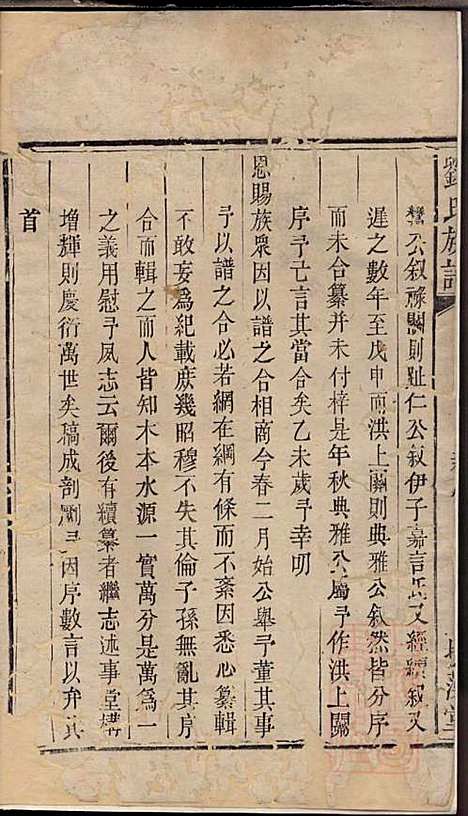 劉氏族譜
公叙祿關則趾仁公叙伊子嘉言氏又經續叙又
遲之數年至戊申而洪上關則典雅公叙然皆分序
而未合纂并未付梓是年秋典雅公屬予作洪上關
序予已言其當合矣乙未歲予幸叨
恩賜族衆因以譜之合相商今春二月始公舉予董其事
予以譜之合必若網在綱有條而不紊因悉心纂輯
不敢妄爲紀載庶幾昭穆不失其倫子孫無亂其序
合而輯之而人皆知木本水源一實萬分是萬爲一
之義用慰予夙志云爾後有續纂者繼志述事堂構
增輝則慶衍萬世矣稿成剖劂予因序數言以弁其
首